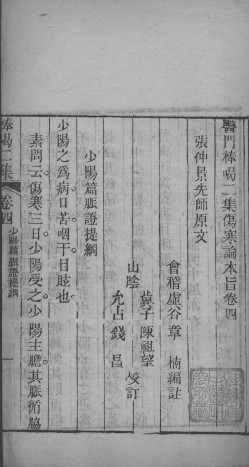 醫門棒喝二集傷寒論本旨卷四
會稽虛谷章　楠編註
張仲景先師原文
山陰
冀子陳祖望
允占錢　昌
校訂
少陽篇脈證提綱
少陽之為病口苦咽干目眩也
素問云傷寒三日少陽受之少陽主膽其脈循脇
棒喝二集
卷四
少陽篇脈證提綱
一